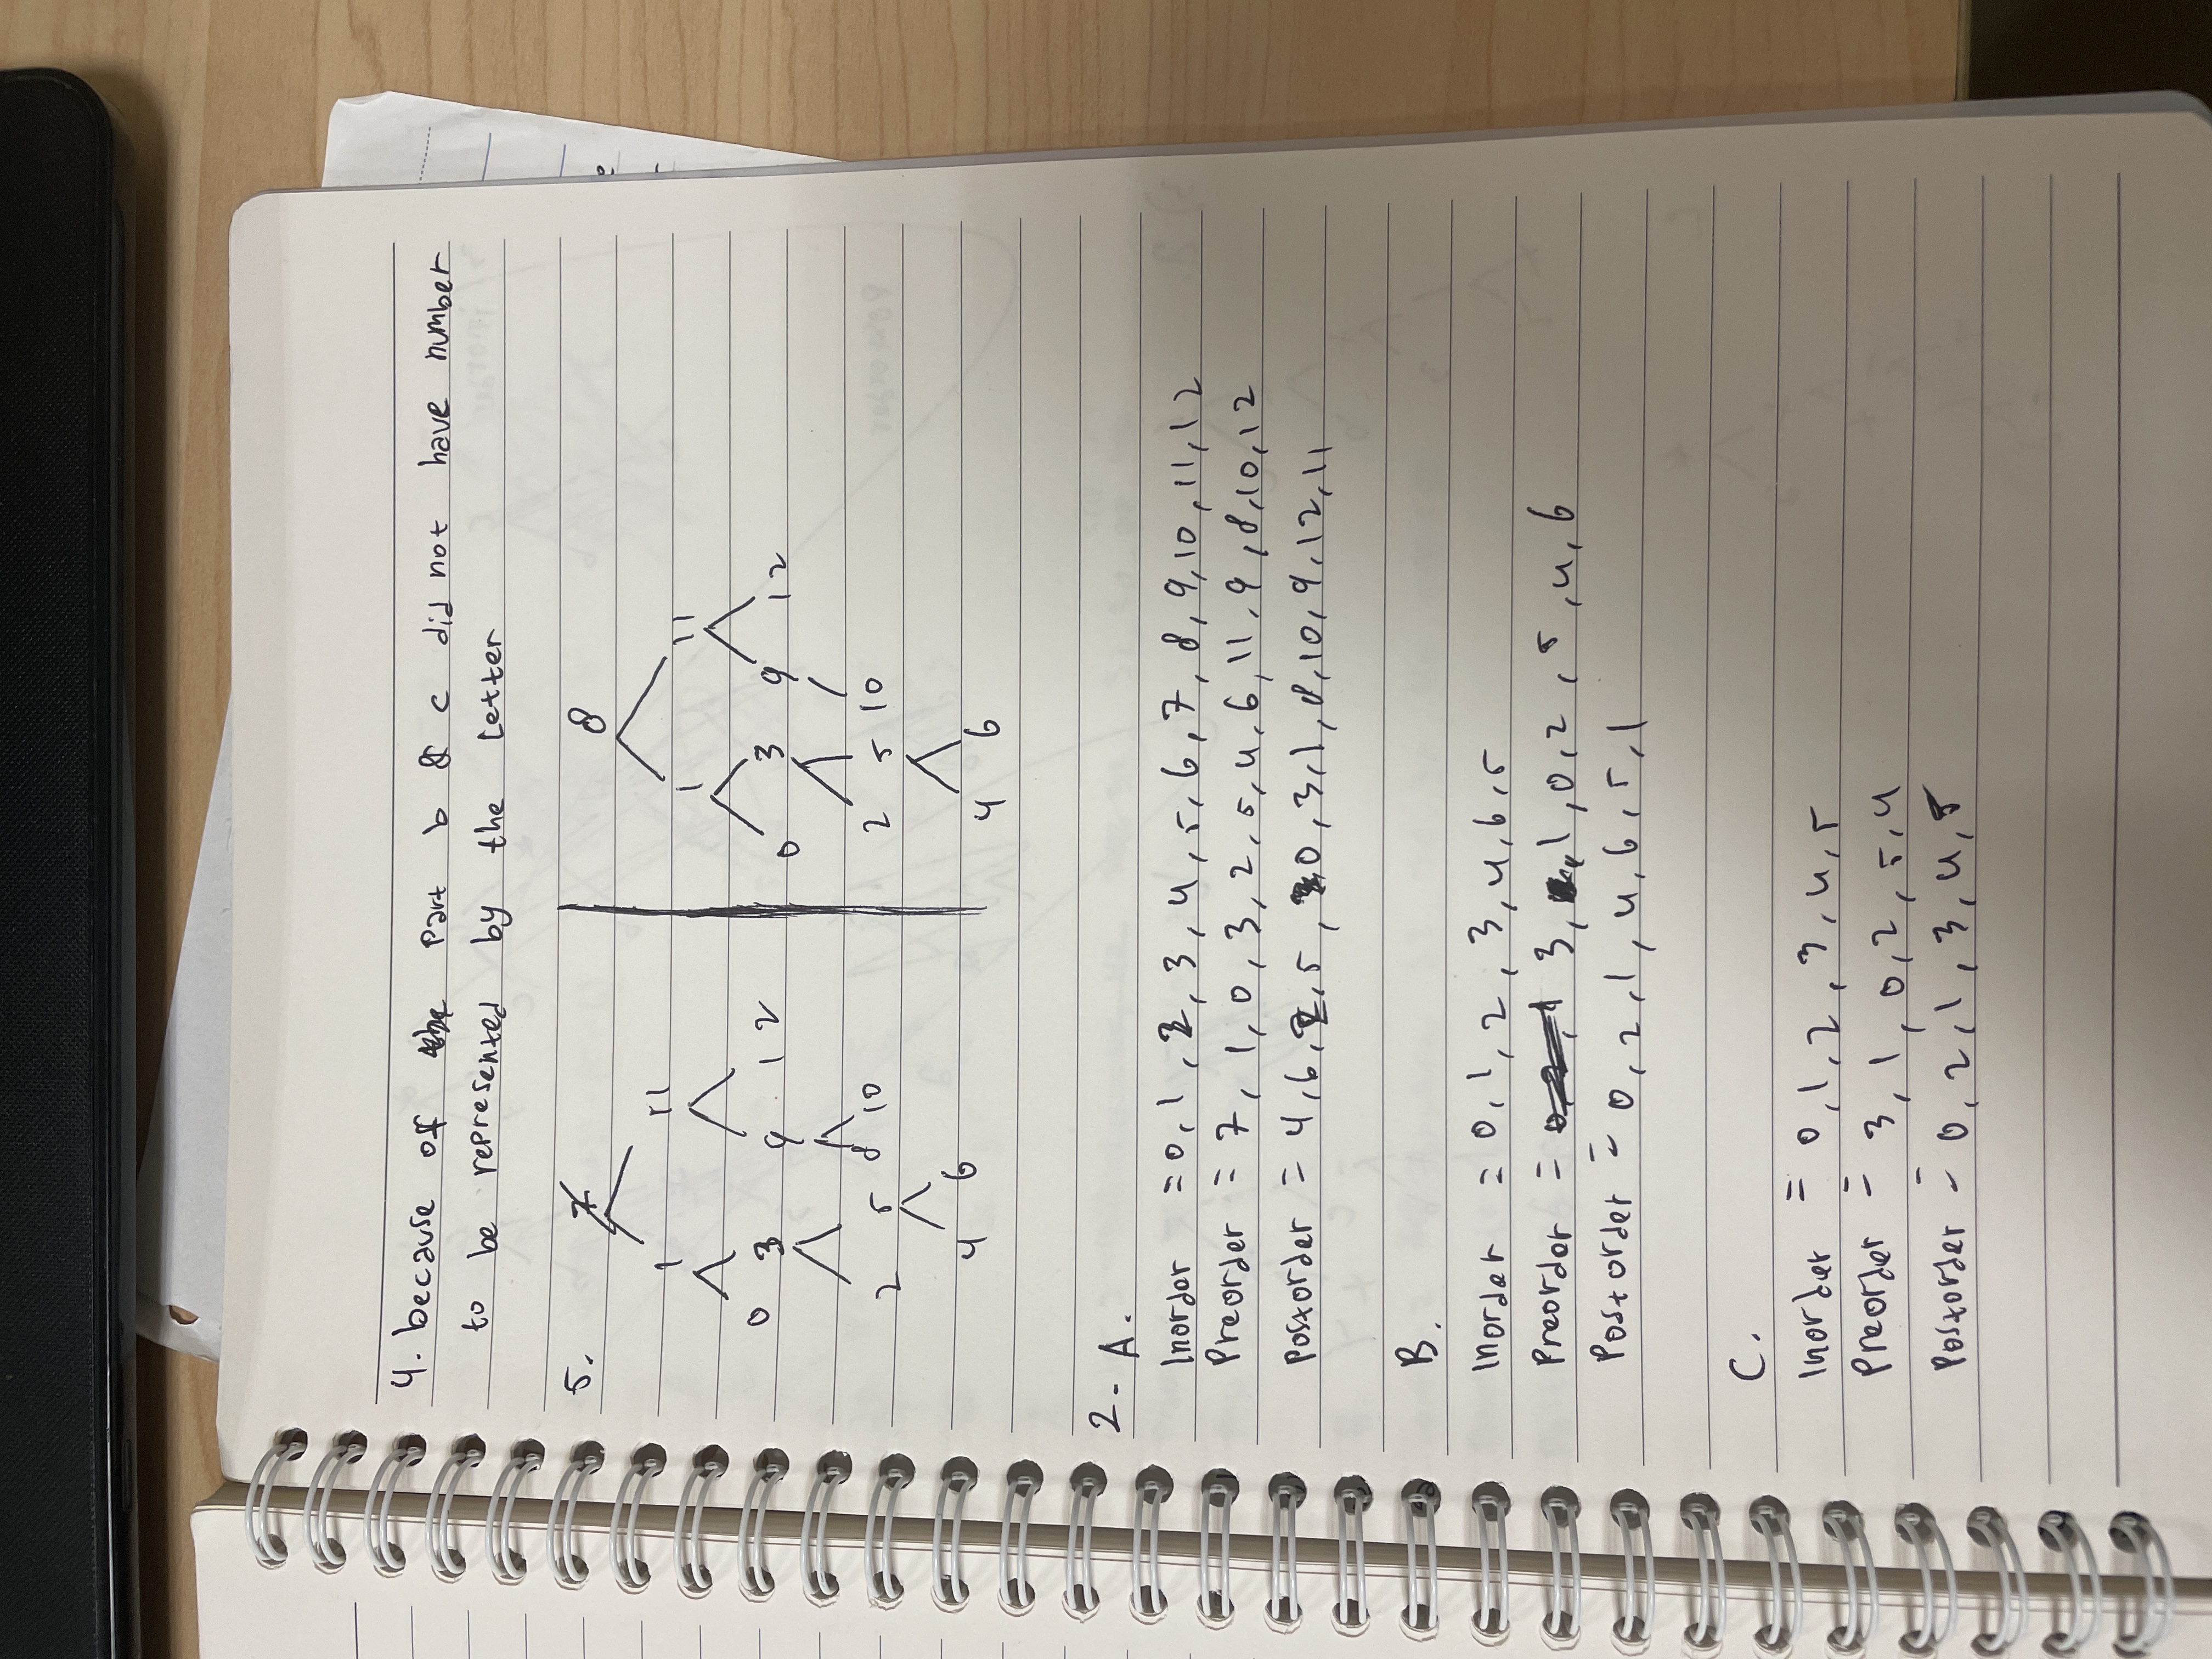 4. because of the part b & c did not have number
to be represented by the letter
5. 7 8
1 11 1 11
0 3 9 12 0 3 9 12
2 5 8 10 2 5 10
4 6 4 6
2. A.
Inorder = 0, 1, 2, 3, 4, 5, 6, 7, 8, 9, 10, 11, 12
Preorder = 7, 1, 0, 3, 2, 5, 4, 6, 11, 9, 8, 10, 12
Postorder = 4, 6, 2, 5, 0, 3, 1, 8, 10, 9, 12, 11
B.
Inorder = 0, 1, 2, 3, 4, 6, 5
Preorder = 3, 1, 0, 2, 5, 4, 6
Postorder = 0, 2, 1, 4, 6, 5, 1
C.
Inorder = 0, 1, 2, 3, 4, 5
Preorder = 3, 1, 0, 2, 5, 4
Postorder = 0, 2, 1, 3, 4, 5